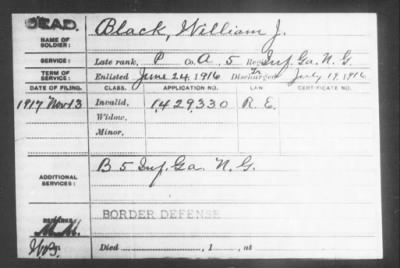 DEAD.
NAME OF SOLDIER: Black, William J.
SERVICE: Late rank, P Co. A, 5 Reg't Inf. Ga. N. G.
TERM OF SERVICE: Enlisted June 24, 1916 Discharged Tr July 19, 1916
DATE OF FILING. CLASS. APPLICATION NO. LAW CERTIFICATE NO.
1917 Nov 13 Invalid, 1,429,330 R. E.
Widow,
Minor,
ADDITIONAL SERVICES: B 5 Inf. Ga. N. G.
BORDER DEFENSE
REMARKS:
Died , 1 , at